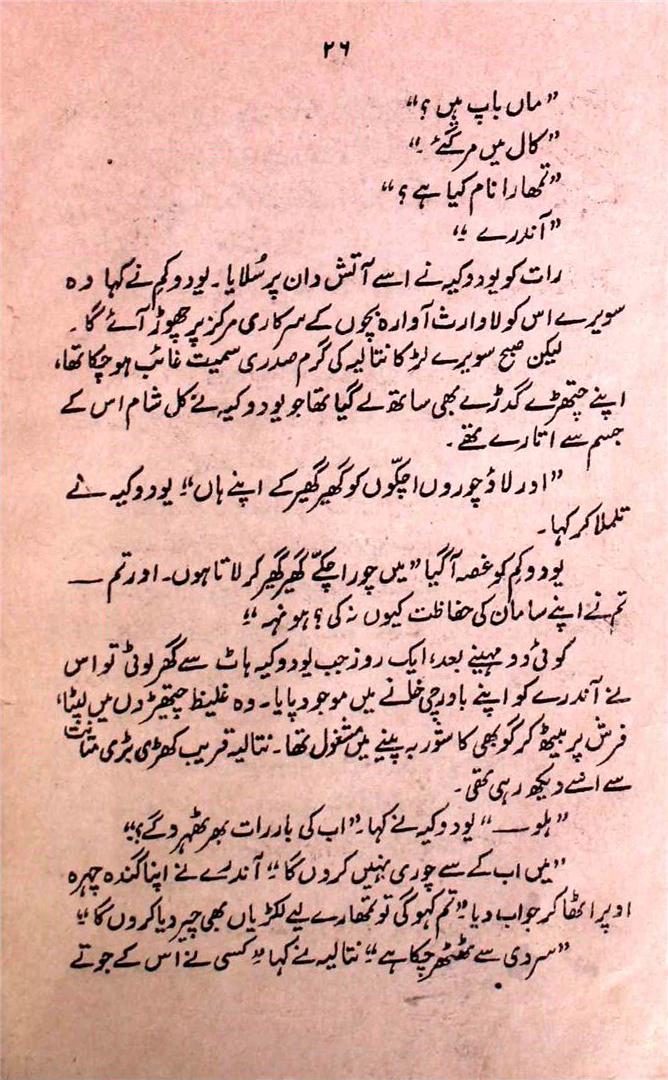 ۲۶
"ماں باپ ہیں؟"
"کال میں مر گئے۔"
"تمھارا نام کیا ہے؟"
"آندرے۔"
رات کو یودوکیہ نے اسے آتش دان پر سُلایا۔ یودوکم نے کہا وہ
سویرے اس کو لاوارث آوارہ بچوں کے سرکاری مرکز پر چھوڑ آئے گا۔
لیکن صبح سویرے لڑکا نتالیہ کی گرم صدری سمیت غائب ہو چکا تھا،
اپنے چتھڑے گدڑے بھی ساتھ لے گیا تھا جو یودوکیہ نے کل شام اس کے
جسم سے اتارے تھے۔
"اور لاؤ چوروں اچکّوں کو گھیر گھیر کے اپنے ہاں" یودوکیہ نے
تلملا کر کہا۔
یودوکم کو غصہ آ گیا "میں چور اچکے گھیر گھیر کر لاتا ہوں۔ اور تم —
تم نے اپنے سامان کی حفاظت کیوں نہ کی؟ ہونہہ"
کوئی دو مہینے بعد، ایک روز جب یودوکیہ ہاٹ سے گھر لوٹی تو اس
نے آندرے کو اپنے باورچی خانے میں موجود پایا۔ وہ غلیظ چیتھڑوں میں لپٹا،
فرش پر بیٹھ کر گوبھی کا شوربہ پینے میں مشغول تھا۔ نتالیہ قریب کھڑی بڑی متانت
سے اسے دیکھ رہی تھی۔
"ہلو —" یودوکیہ نے کہا۔ "اب کی بار رات بھر ٹھہرو گے؟"
"میں اب کے سے چوری نہیں کروں گا" آندرے نے اپنا گندہ چہرہ
اوپر اٹھا کر جواب دیا "تم کہو گی تو تمھارے لیے لکڑیاں بھی چیر دیا کروں گا"
"سردی سے ٹھٹھر چکا ہے" نتالیہ نے کہا "کسی نے اس کے جوتے